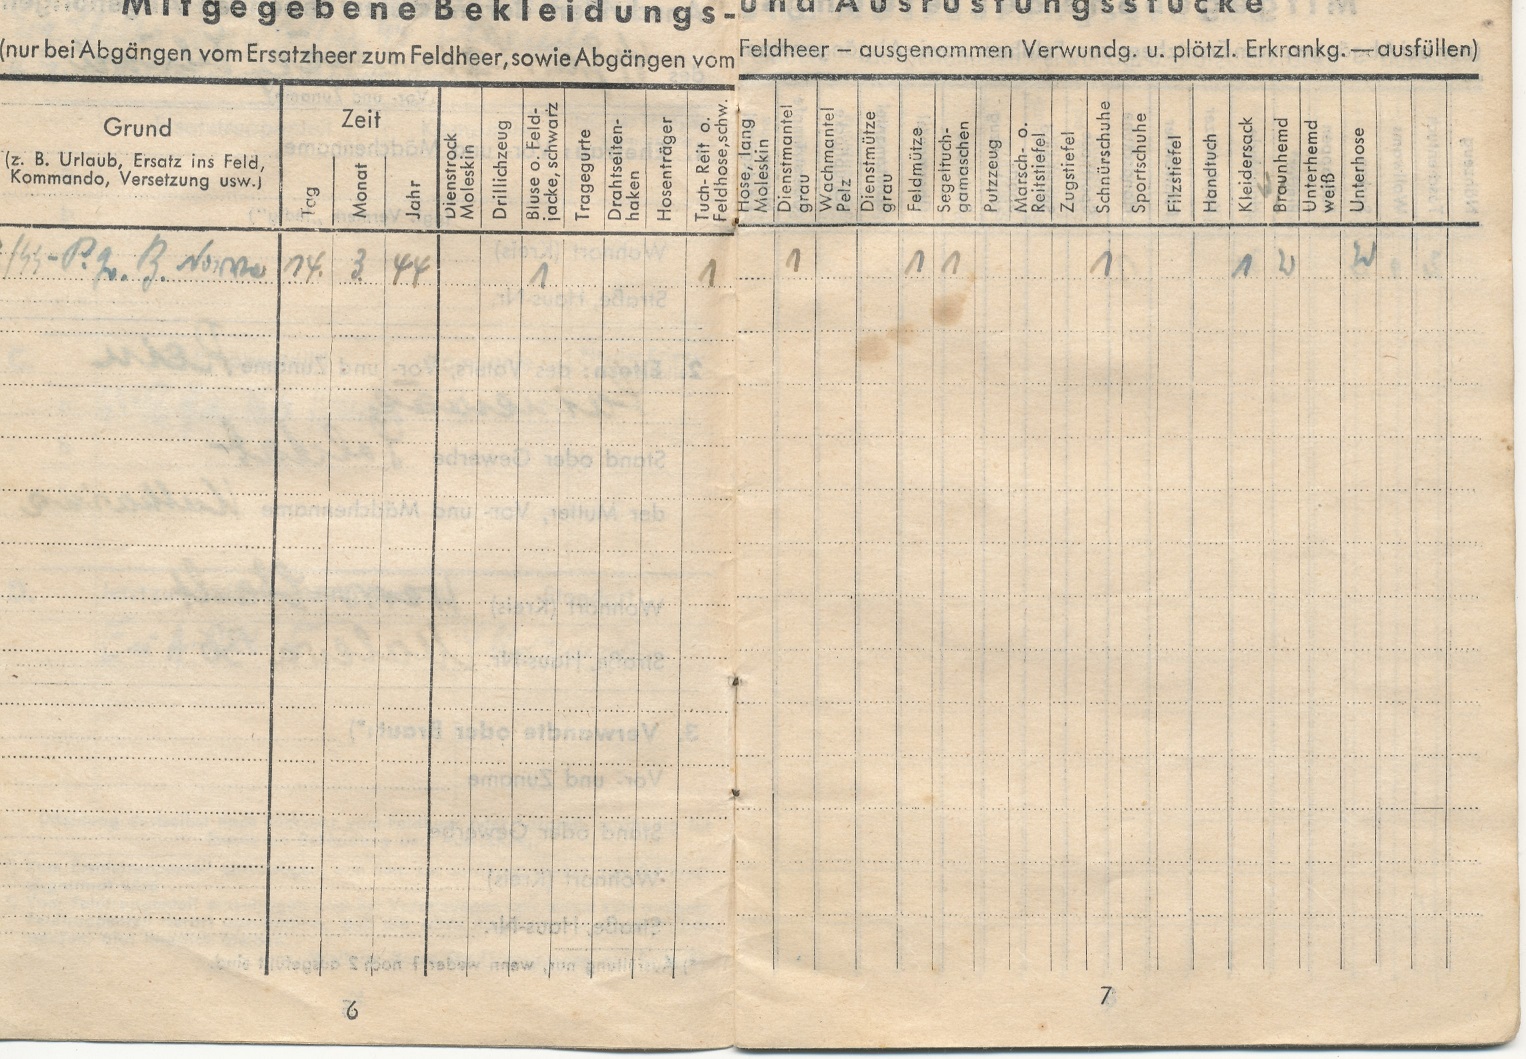 Mitgegebene Bekleidungs- und Ausrüstungsstücke
(nur bei Abgängen vom Ersatzheer zum Feldheer, sowie Abgängen vom Feldheer – ausgenommen Verwundg. u. plötzl. Erkrankg. — ausfüllen)
Grund
(z. B. Urlaub, Ersatz ins Feld,
Kommando, Versetzung usw.)
Zeit
Tag
Monat
Jahr
Dienstrock
Moleskin
Drillichzeug
Bluse o. Feld-
jacke, schwarz
Tragegurte
Drahtseiten-
haken
Hosenträger
Tuch- Reit o.
Feldhose, schw.
Hose, lang
Moleskin
Dienstmantel
grau
Wachmantel
Pelz
Dienstmütze
grau
Feldmütze
Segeltuch-
gamaschen
Putzzeug
Marsch- o.
Reitstiefel
Zugstiefel
Schnürschuhe
Sportschuhe
Filzstiefel
Handtuch
Kleidersack
Braunhemd
Unterhemd
weiß
Unterhose
14. 3 44 1 1 1 1 1 1 1 2 2
6
7